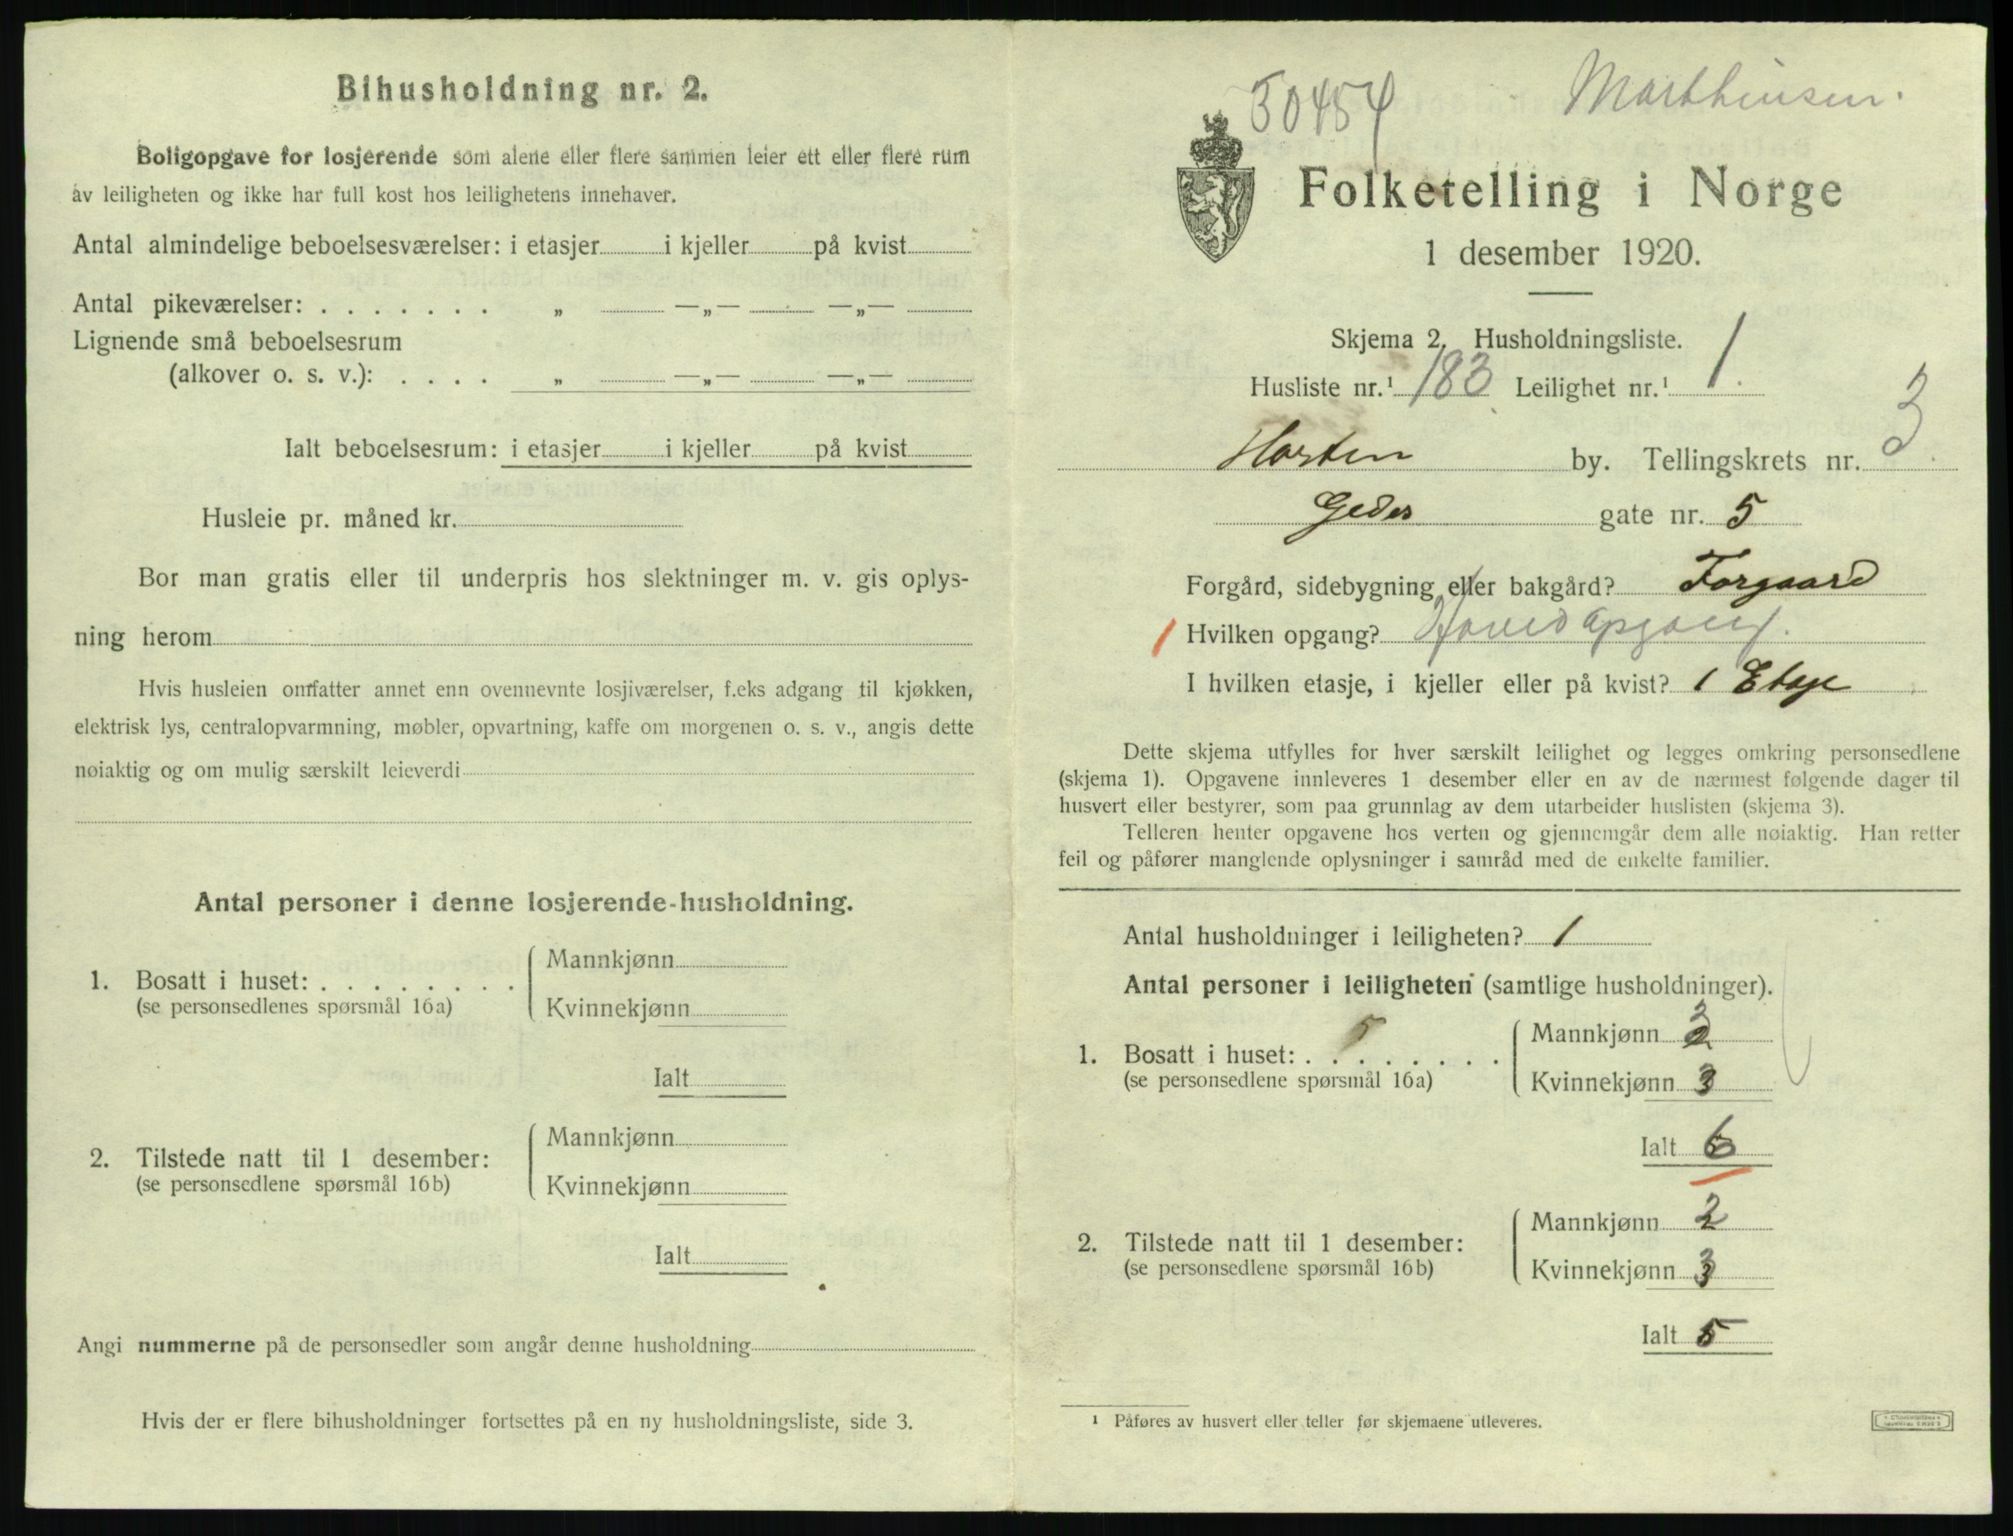 Bihusholdning nr. 2.
Boligopgave for losjerende som alene eller flere sammen leier ett eller flere rum
av leiligheten og ikke har full kost hos leilighetens innehaver.
Antal almindelige beboelsesværelser: i etasjer i kjeller på kvist
Antal pikeværelser: . . . . . . . „ —„— —„—
Lignende små beboelsesrum
(alkover o. s. v.): . . . . „ —„— —„—
Ialt beboelsesrum: i etasjer i kjeller på kvist
Husleie pr. måned kr.
Bor man gratis eller til underpris hos slektninger m. v. gis oplys-
ning herom
Hvis husleien omfatter annet enn ovennevnte losjiværelser, f.eks adgang til kjøkken,
elektrisk lys, centralopvarmning, møbler, opvartning, kaffe om morgenen o. s. v., angis dette
nøiaktig og om mulig særskilt leieverdi
Antal personer i denne losjerende-husholdning.
1. Bosatt i huset: . . . . . . . .
(se personsedlenes spørsmål 16a)
Mannkjønn
Kvinnekjønn
Ialt
2. Tilstede natt til 1 desember:
(se personsedlene spørsmål 16b)
Mannkjønn
Kvinnekjønn
Ialt
Angi nummerne på de personsedler som angår denne husholdning
Hvis der er flere bihusholdninger fortsettes på en ny husholdningsliste, side 3.
50454 Marthinsen.
Folketelling i Norge
1 desember 1920.
Skjema 2. Husholdningsliste.
Husliste nr.¹ 183 Leilighet nr.¹ 1
Horten by. Tellingskrets nr. 3
Gedes gate nr. 5
Forgård, sidebygning eller bakgård? Forgaard
1 Hvilken opgang? Hovedopgang.
I hvilken etasje, i kjeller eller på kvist? 1 Etage
Dette skjema utfylles for hver særskilt leilighet og legges omkring personsedlene
(skjema 1). Opgavene innleveres 1 desember eller en av de nærmest følgende dager til
husvert eller bestyrer, som paa grunnlag av dem utarbeider huslisten (skjema 3).
Telleren henter opgavene hos verten og gjennemgår dem alle nøiaktig. Han retter
feil og påfører manglende oplysninger i samråd med de enkelte familier.
Antal husholdninger i leiligheten? 1
Antal personer i leiligheten (samtlige husholdninger).
1. Bosatt i huset: . . . . . . . . 5
(se personsedlene spørsmål 16a)
Mannkjønn 3
Kvinnekjønn 3
Ialt 6
2. Tilstede natt til 1 desember:
(se personsedlene spørsmål 16b)
Mannkjønn 2
Kvinnekjønn 3
Ialt 5
¹ Påføres av husvert eller teller før skjemaene utleveres.